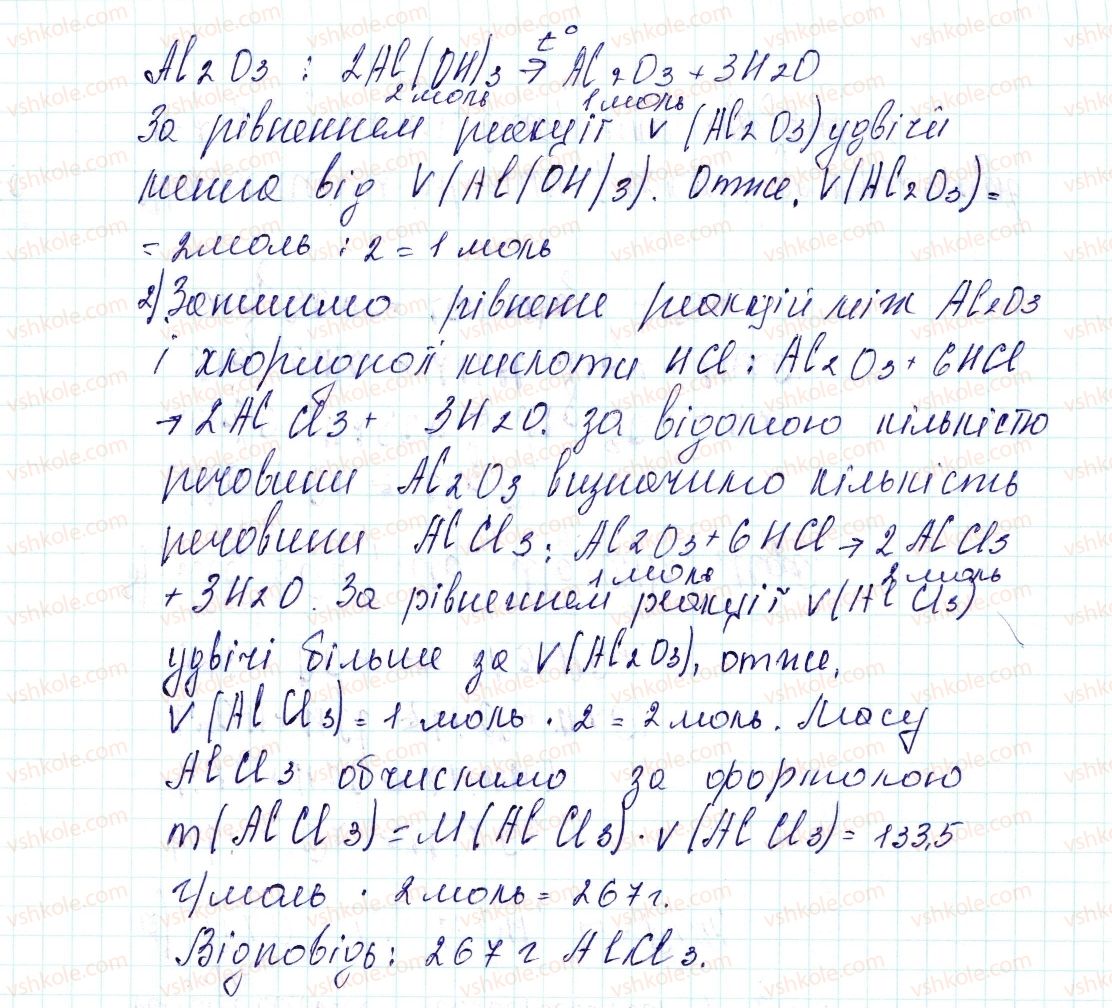 Al2O3 : 2Al(OH)3 t°→ Al2O3 + 3H2O
2 моль 1 моль
За рівненнем реакції ν(Al2O3) удвічи
менша від ν(Al(OH)3). Отже, ν(Al2O3) =
= 2 моль : 2 = 1 моль
2) Запишимо рівнене реакцій між Al2O3
і хлоридной кислоти HCl : Al2O3 + 6HCl
→ 2AlCl3 + 3H2O. за відомою кількістю
речовини Al2O3 визначимо кількість
речовини AlCl3 : Al2O3 + 6HCl → 2AlCl3
1 моль 2 моль
+ 3H2O. За рівненнем реакції ν(AlCl3)
удвічі більше за ν(Al2O3), отже,
ν(AlCl3) = 1 моль · 2 = 2 моль. Масу
AlCl3 обчислимо за формолою
m(AlCl3) = M(AlCl3) · ν(AlCl3) = 133,5
г/моль · 2 моль = 267 г.
Відповідь: 267 г AlCl3.